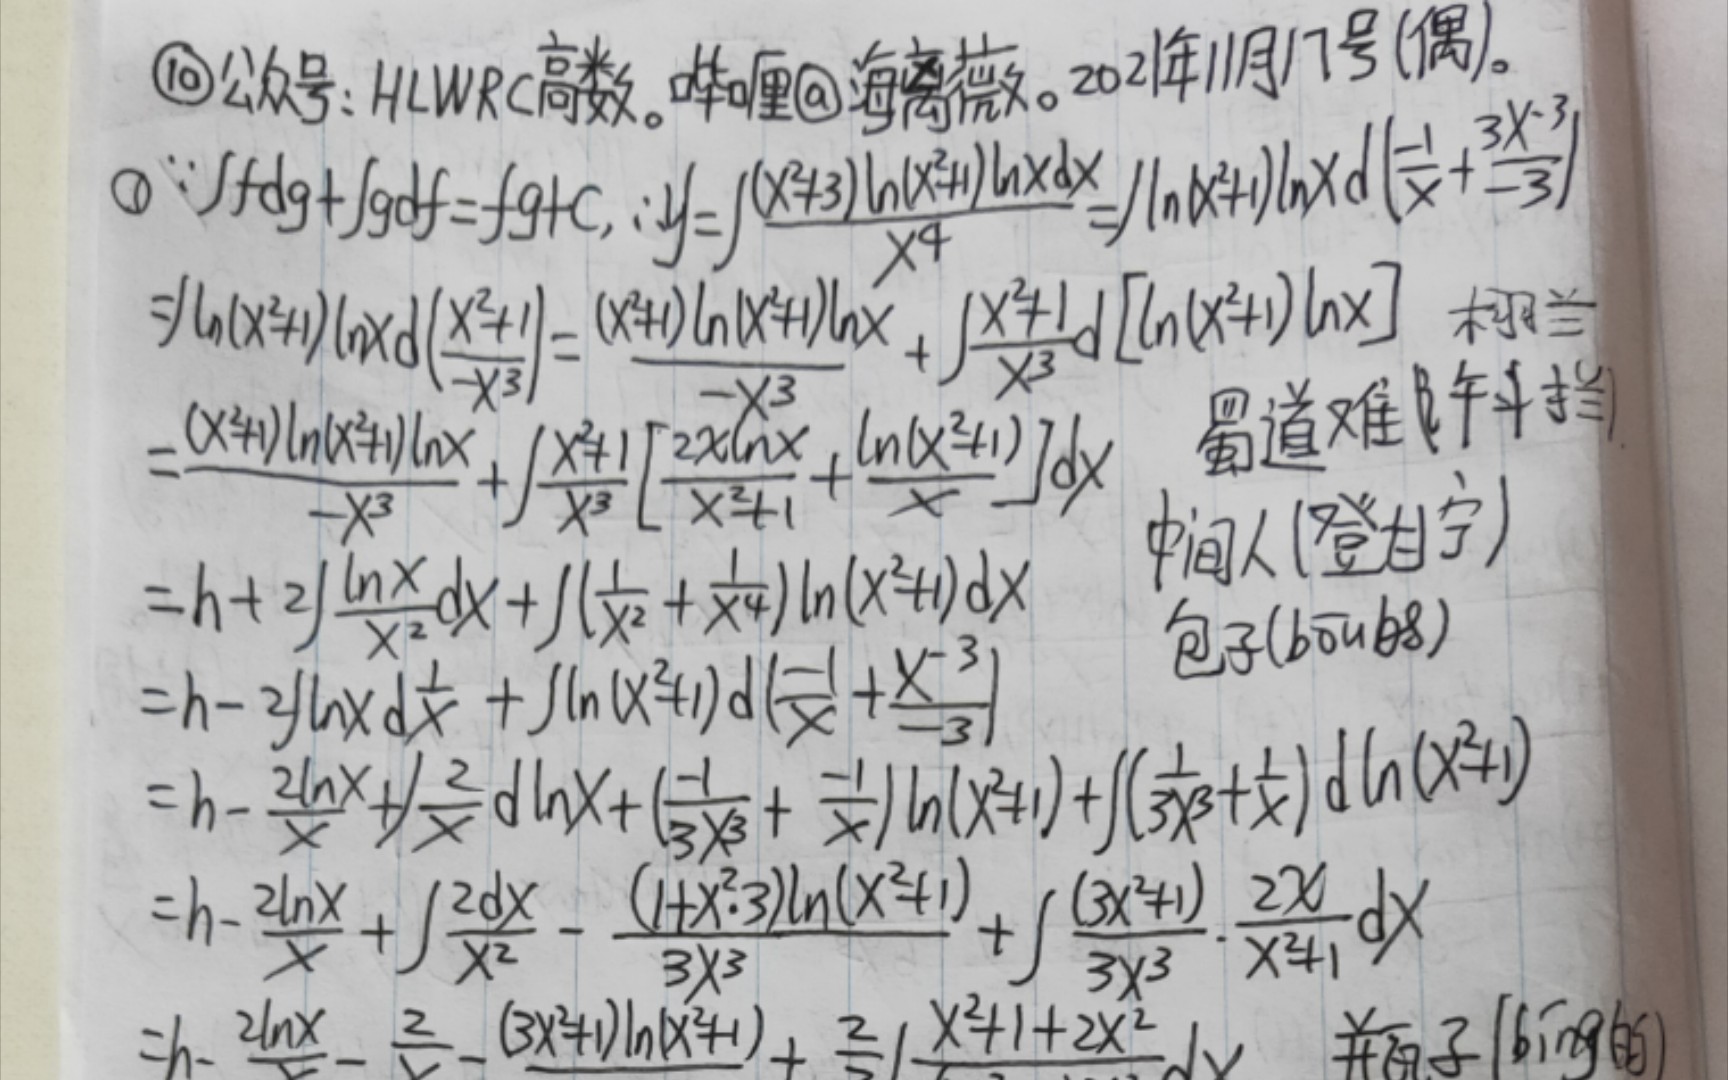 ⑩公众号:HLWRC高数。哔哩@海离薇。2021年11月17号(偶)。
① ∵∫fdg+∫gdf=fg+C, ∴y=∫(x²+3)ln(x²+1)lnxdx/x⁴=∫ln(x²+1)lnxd(-1/x+3x⁻³/-3)
=∫ln(x²+1)lnxd(x²+1/-x³)=(x²+1)ln(x²+1)lnx/-x³+∫x²+1/x³d[ln(x²+1)lnx]
=(x²+1)ln(x²+1)lnx/-x³+∫x²+1/x³[2xlnx/x²+1+ln(x²+1)/x]dx
蜀道难
=h+2∫lnx/x²dx+∫(1/x²+1/x⁴)ln(x²+1)dx
中间人(登甘宁)
包子
=h-2∫lnxd1/x+∫ln(x²+1)d(-1/x+x⁻³/-3)
=h-2lnx/x+∫2/xdlnx+(-1/3x³+-1/x)ln(x²+1)+∫(1/3x³+1/x)dln(x²+1)
=h-2lnx/x+∫2dx/x²-(1+x²·3)ln(x²+1)/3x³+∫(3x²+1)/3x³·2x/x²+1dx
=h-2lnx/x-2/x-(3x²+1)ln(x²+1)+2/3∫x²+1+2x² dx